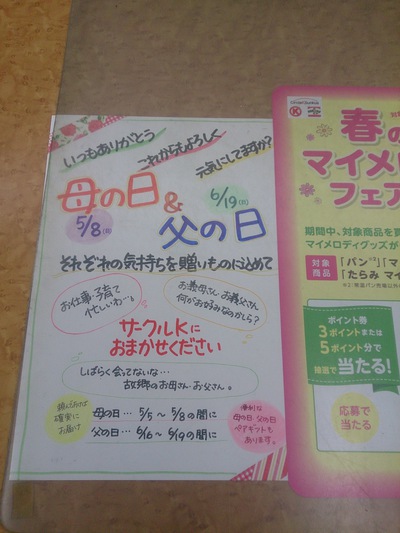 いつもありがとう
これからもよろしく
元気にしてますか?
母の日&
5/8(日)
6/19(日)
父の日
それぞれの気持ちを贈いものに込めて
お仕事、子育て
忙しいわ…
お義母さん・お義父さん
何がお好みなのかしら?
サークルKに
おまかせください
しばらく会ってないな…
故郷のお母さん・お父さん。
確実に
お届け
母の日… 5/5 ~ 5/8の間に
父の日… 6/16 ~ 6/19の間に
便利な
母の日・父の日
ペアギフトも
あります。
K
春の
マイメロ
フェア
期間中、対象商品を買
マイメロディグッズが
対象
商品
「パン」※2「マ
「たらみ マイ
ポイント券
3ポイントまたは
5ポイント分で
抽選で当たる!
応募で
当たる